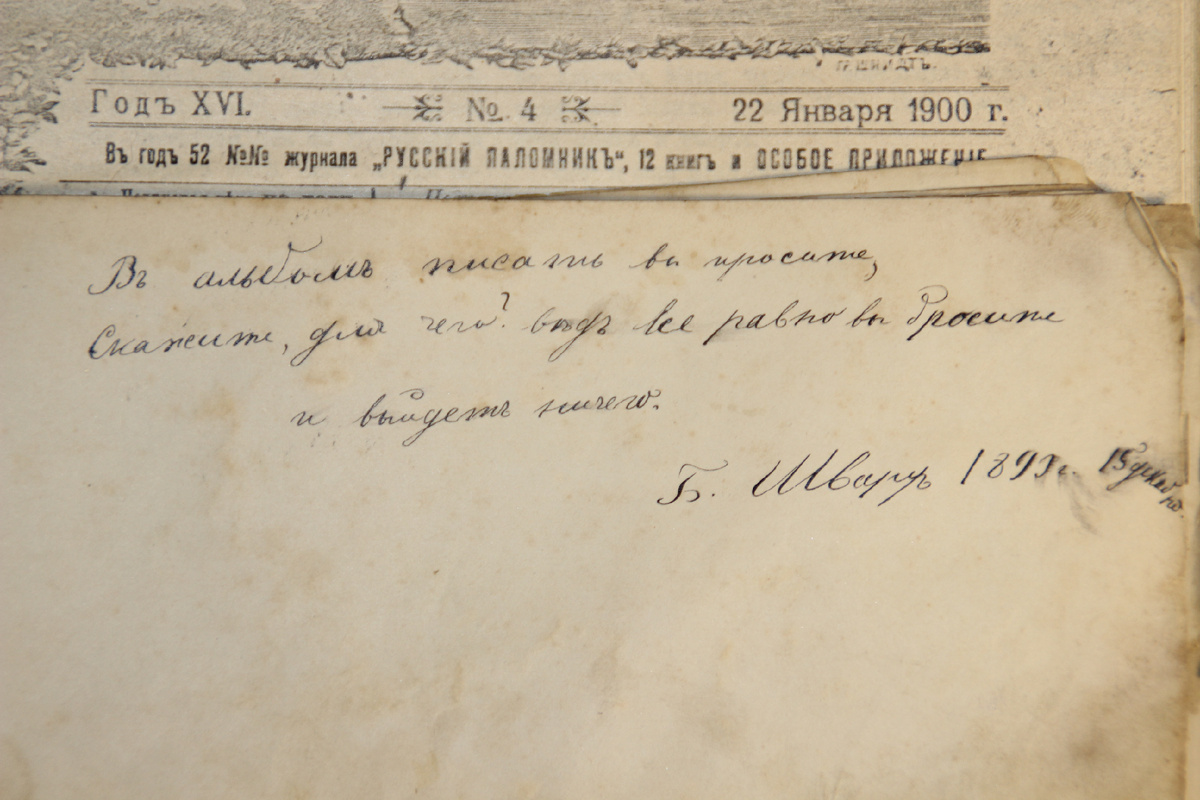 Годъ XVI.
№ 4
22 Января 1900 г.
Въ годъ 52 №№ журнала „РУССКІЙ ПАЛОМНИКЪ“, 12 книгъ и ОСОБОЕ ПРИЛОЖЕНІЕ
Въ альбомъ писать вы просите,
Скажите, для чего? ведь все равно вы бросите
и выйдетъ ничего.
Б. Шварцъ 189 г. 15 декабря.